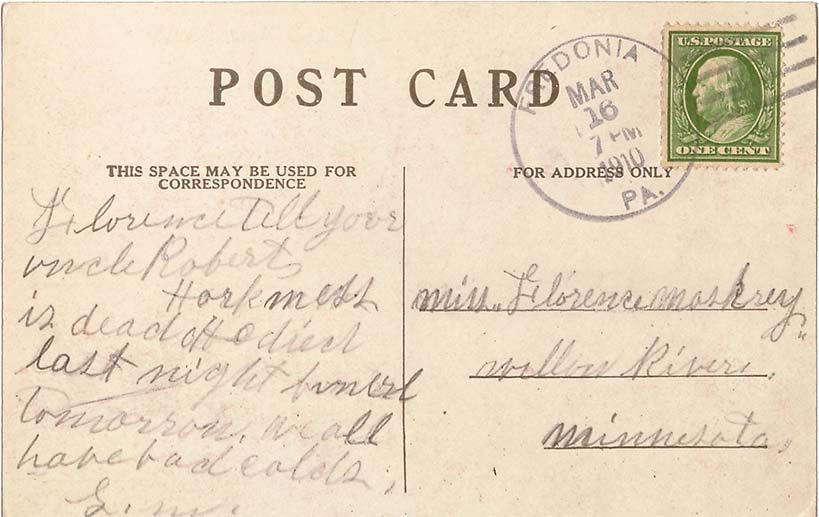 POST CARD
FREDONIA
MAR
16
7 PM
1910
PA.
U.S. POSTAGE
ONE CENT
THIS SPACE MAY BE USED FOR
CORRESPONDENCE
Florence tell your
uncle Roberts
is dead He died
last night funerl
tomorrow. we all
have bad colds.
FOR ADDRESS ONLY
miss. Florence moskrey
willow River.
minnesota.